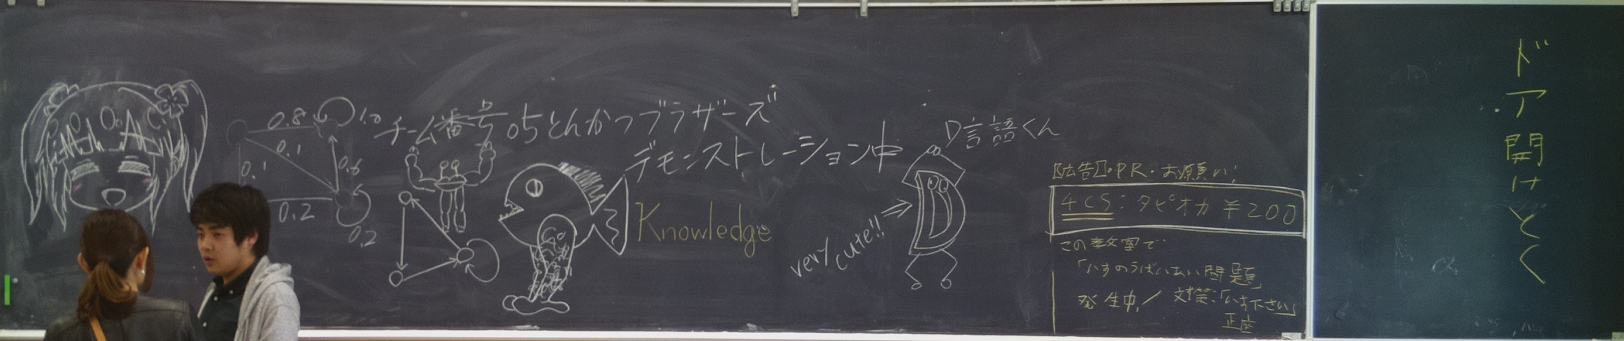 0.8
1.0
0.1
0.1
0.6
0.2
0.2
チーム番号05とんかつブラザーズ
デモンストレーション中
Knowledge
D言語くん
very cute!!
【広告】・PR・お願い!
4CS:タピオカ ¥200
この教室で
「いすのうばいあい問題」
発生中! 対策:「いす下さい」
正座
ドア開けとく